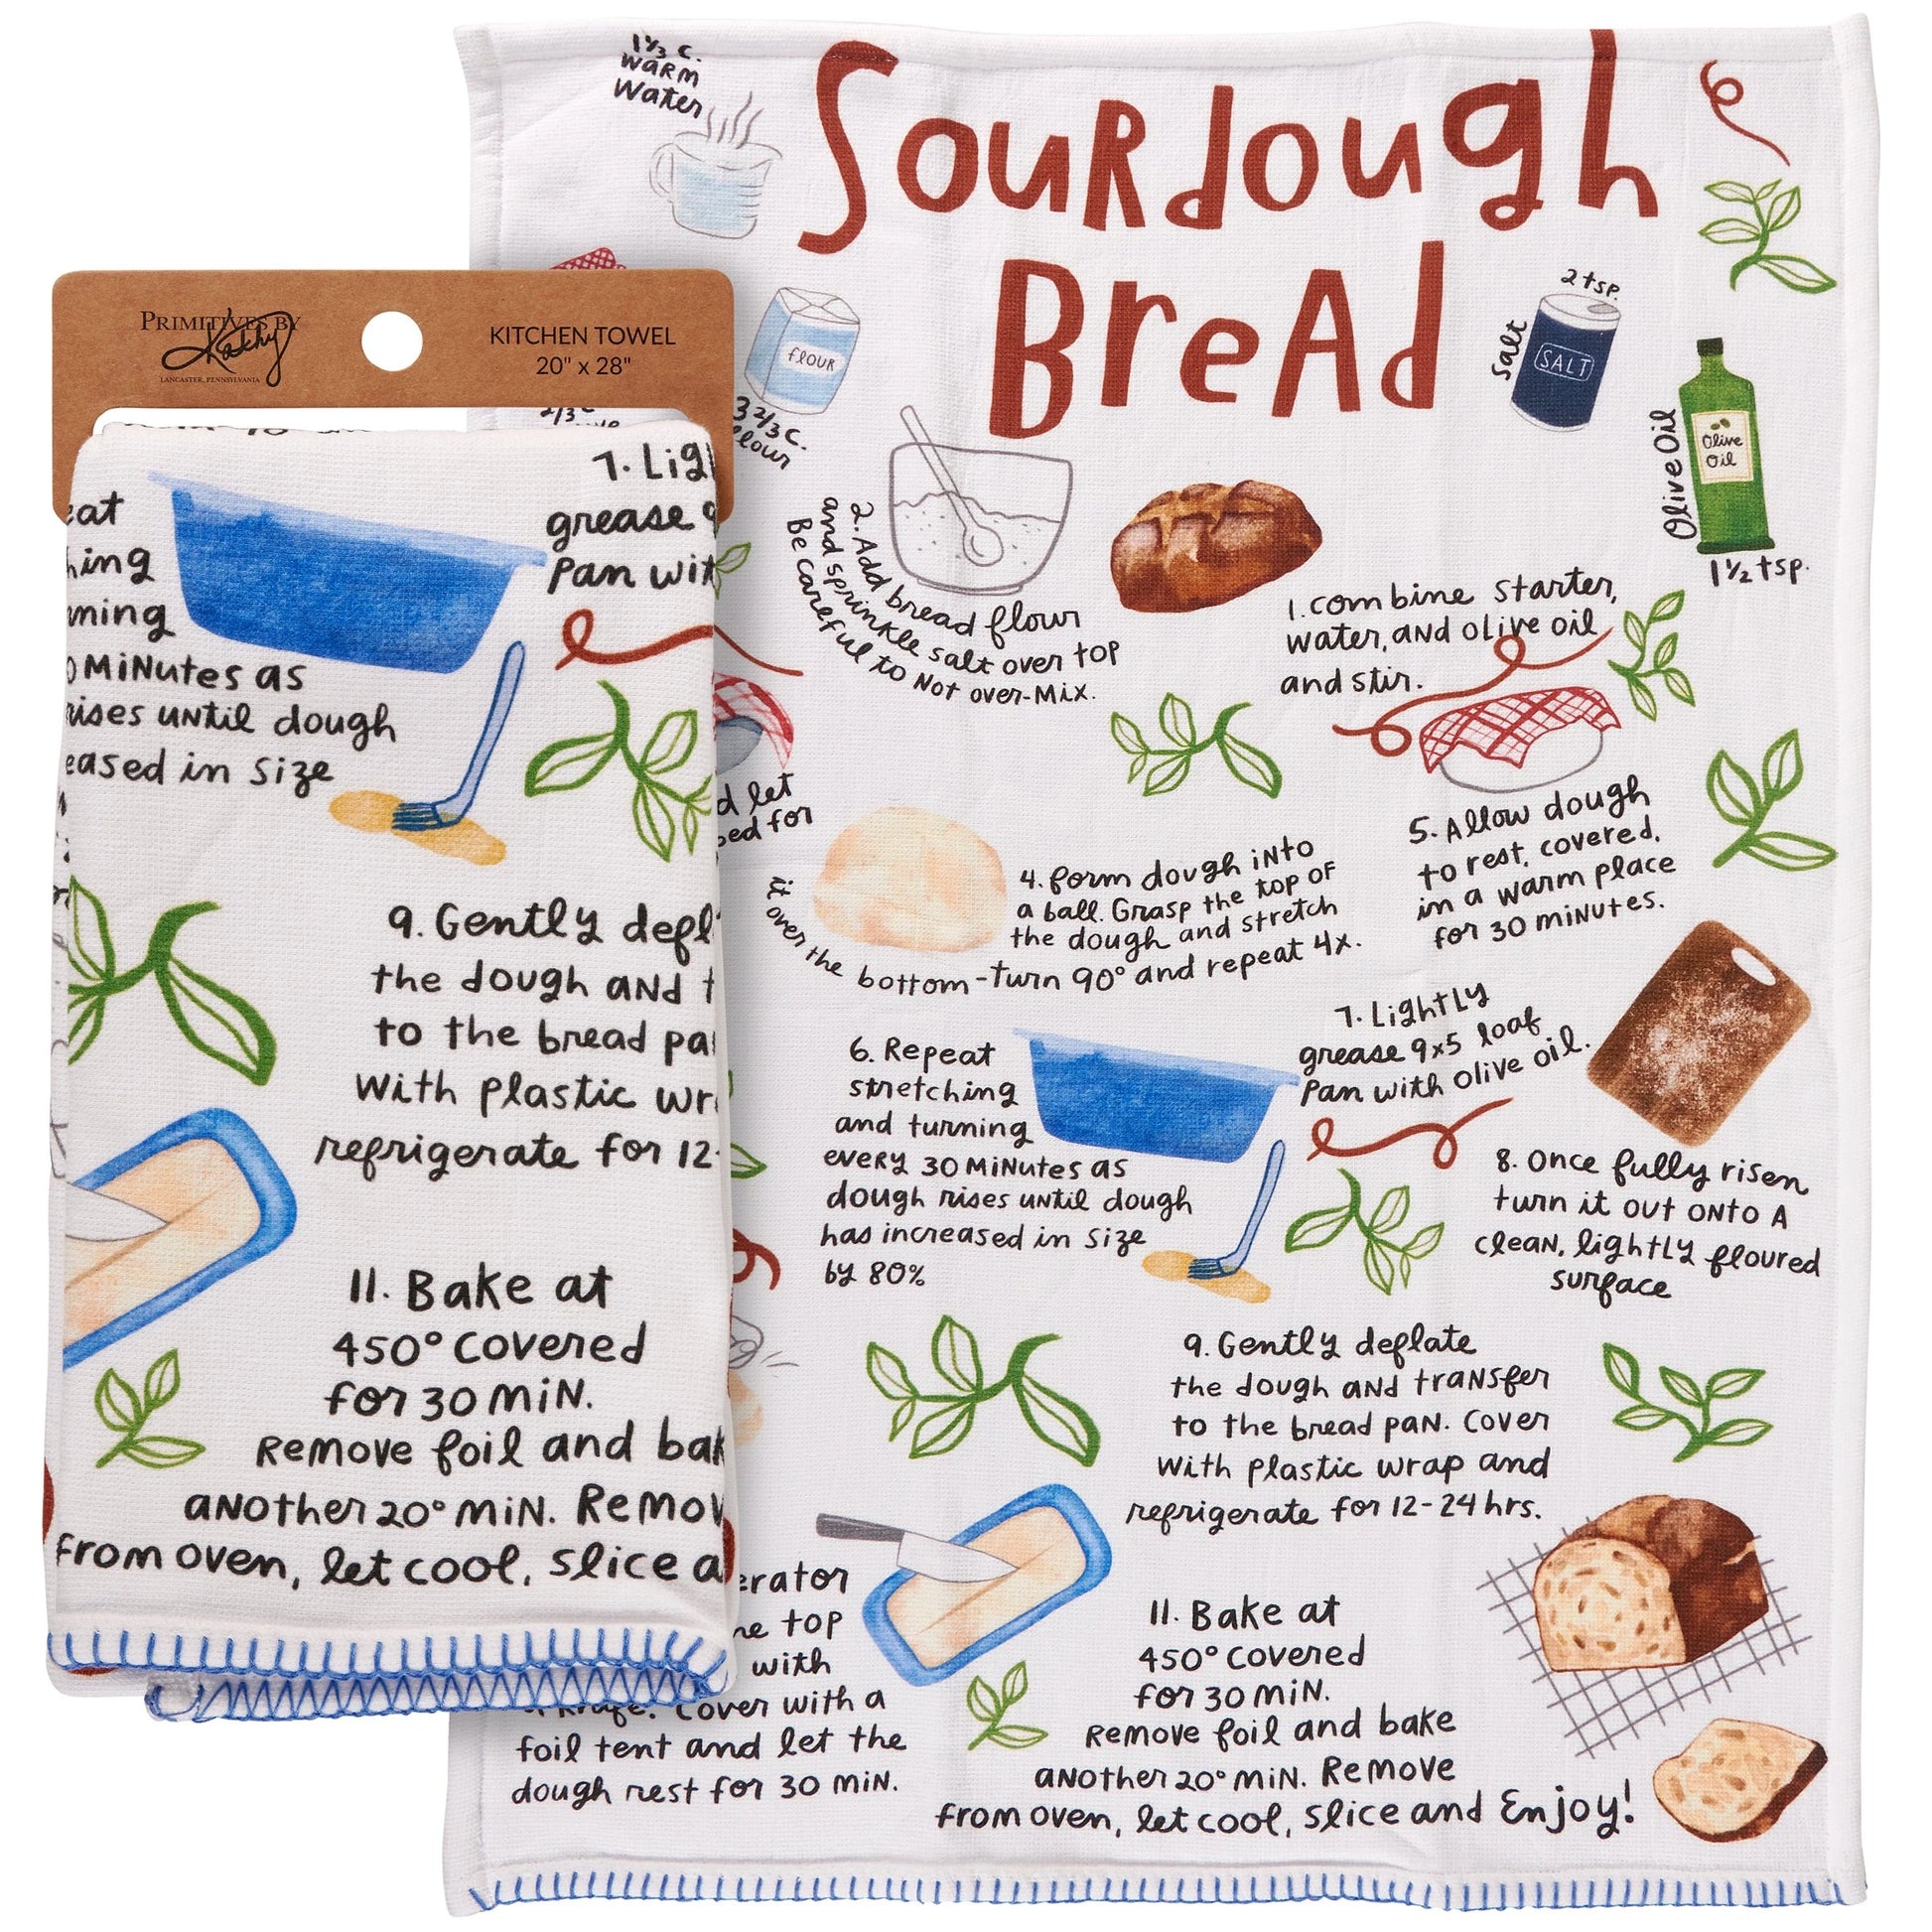 PRIMITIVES BY
Kathy
LANCASTER, PENNSYLVANIA
KITCHEN TOWEL
20" x 28"
7. Lig
grease 9
Pan wit
eat
hing
rning
0 MiNutes as
rises until dough
eased in size
9. Gently defl
the dough and t
to the bread pa
with plastic wr
refrigerate for 12-
11. Bake at
450° covered
for 30 MiN.
Remove foil and bak
another 20° MiN. Remov
from oven, let cool, slice a
Sourdough
Bread
1⅓ c.
warm
water
flour
3 2/3 c.
flour
2/3 c
2 tsp.
Salt
SALT
Olive Oil
Olive
Oil
1½ tsp.
1. combine starter,
water, and olive oil
and stir.
2. Add bread flour
and sprinkle salt over top
Be careful to Not over-Mix.
d let
ped for
4. form dough into
a ball. Grasp the top of
the dough and stretch
it over the bottom-turn 90° and repeat 4x.
5. Allow dough
to rest, covered,
in a warm place
for 30 minutes.
6. Repeat
stretching
and turning
every 30 MiNutes as
dough rises until dough
has increased in size
by 80%
7. Lightly
grease 9x5 loaf
Pan with olive oil.
8. Once fully risen
turn it out onto a
clean, lightly floured
surface
9. Gently deflate
the dough and transfer
to the bread pan. Cover
with plastic wrap and
refrigerate for 12-24 hrs.
erator
he top
with
a knife. Cover with a
foil tent and let the
dough rest for 30 MiN.
11. Bake at
450° covered
for 30 MiN.
Remove foil and bake
another 20° MiN. Remove
from oven, let cool, slice and Enjoy!